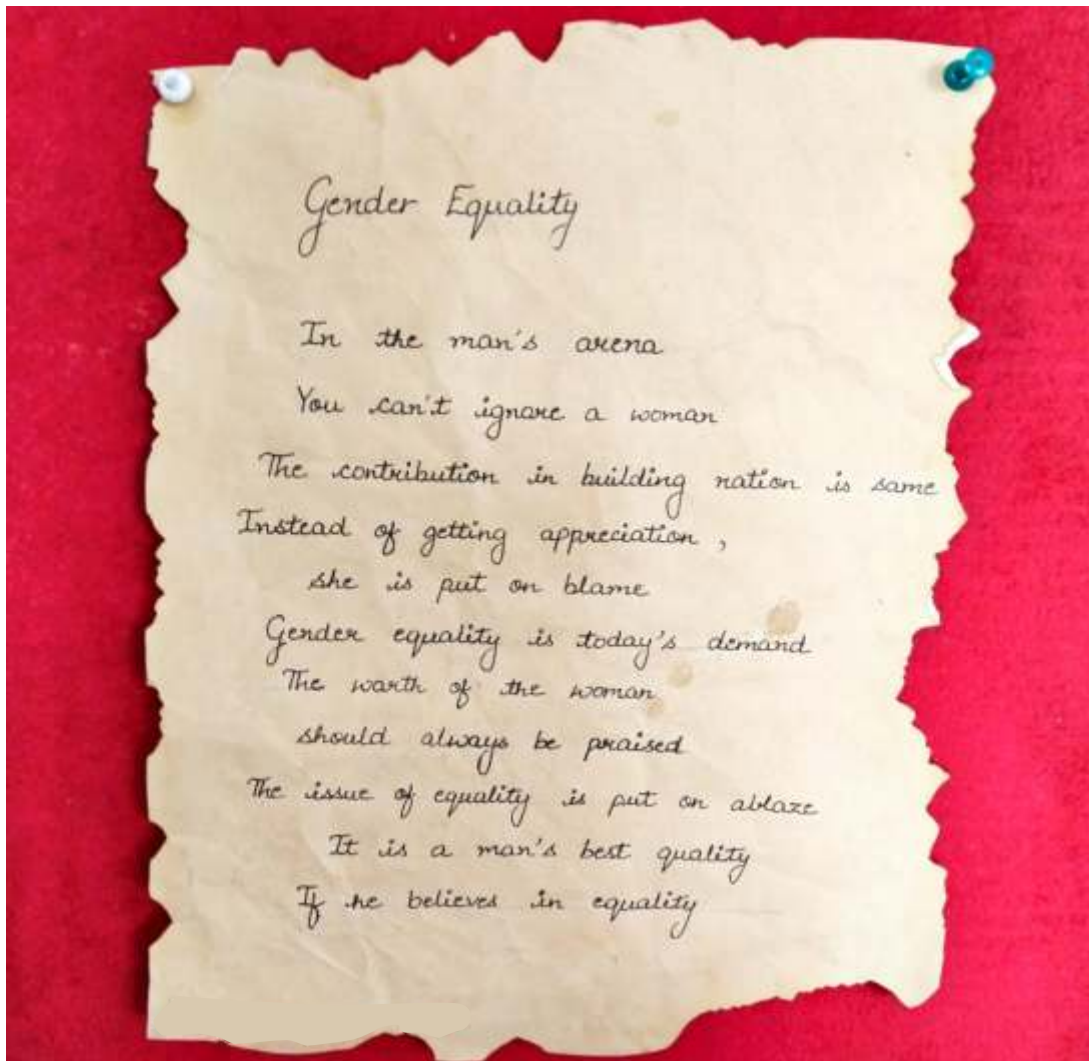 Gender Equality
In the man's arena
You can't ignore a woman
The contribution in building nation is same
Instead of getting appreciation ,
she is put on blame
Gender equality is today's demand
The worth of the woman
should always be praised
The issue of equality is put on ablaze
It is a man's best quality
If he believes in equality